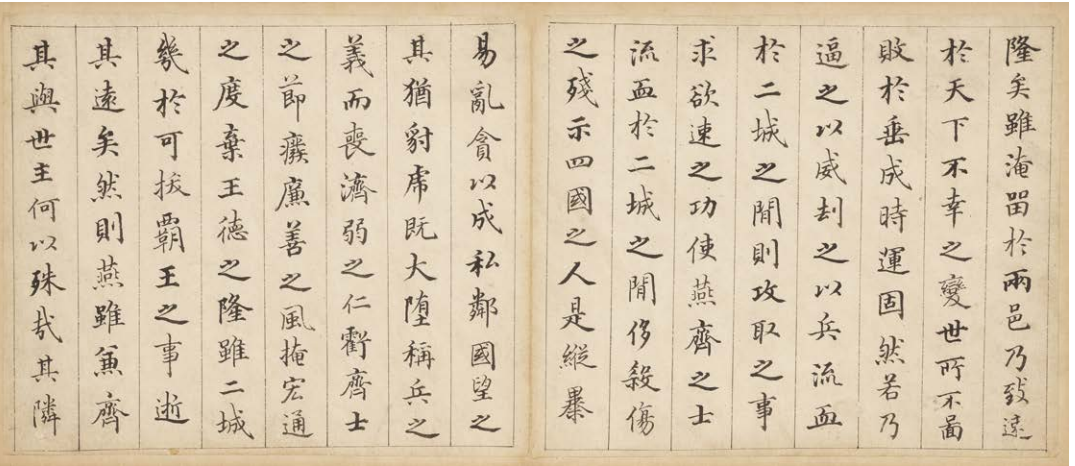 隆矣雖淹畱於兩邑乃致遠
於天下不幸之變世所不啚
敗於垂成時運固然若乃
逼之以威刦之以兵流血
於二城之閒則攻取之事
求欲速之功使燕齊之士
流血於二城之閒侈殺傷
之殘示四國之人是縱暴
易亂貪以成私鄰國望之
其猶豺虎既大墮稱兵之
義而喪濟弱之仁虧齊士
之節癈廉善之風掩宏通
之度棄王德之隆雖二城
幾於可拔覇王之事逝
其遠矣然則燕雖兼齊
其與世主何以殊哉其隣